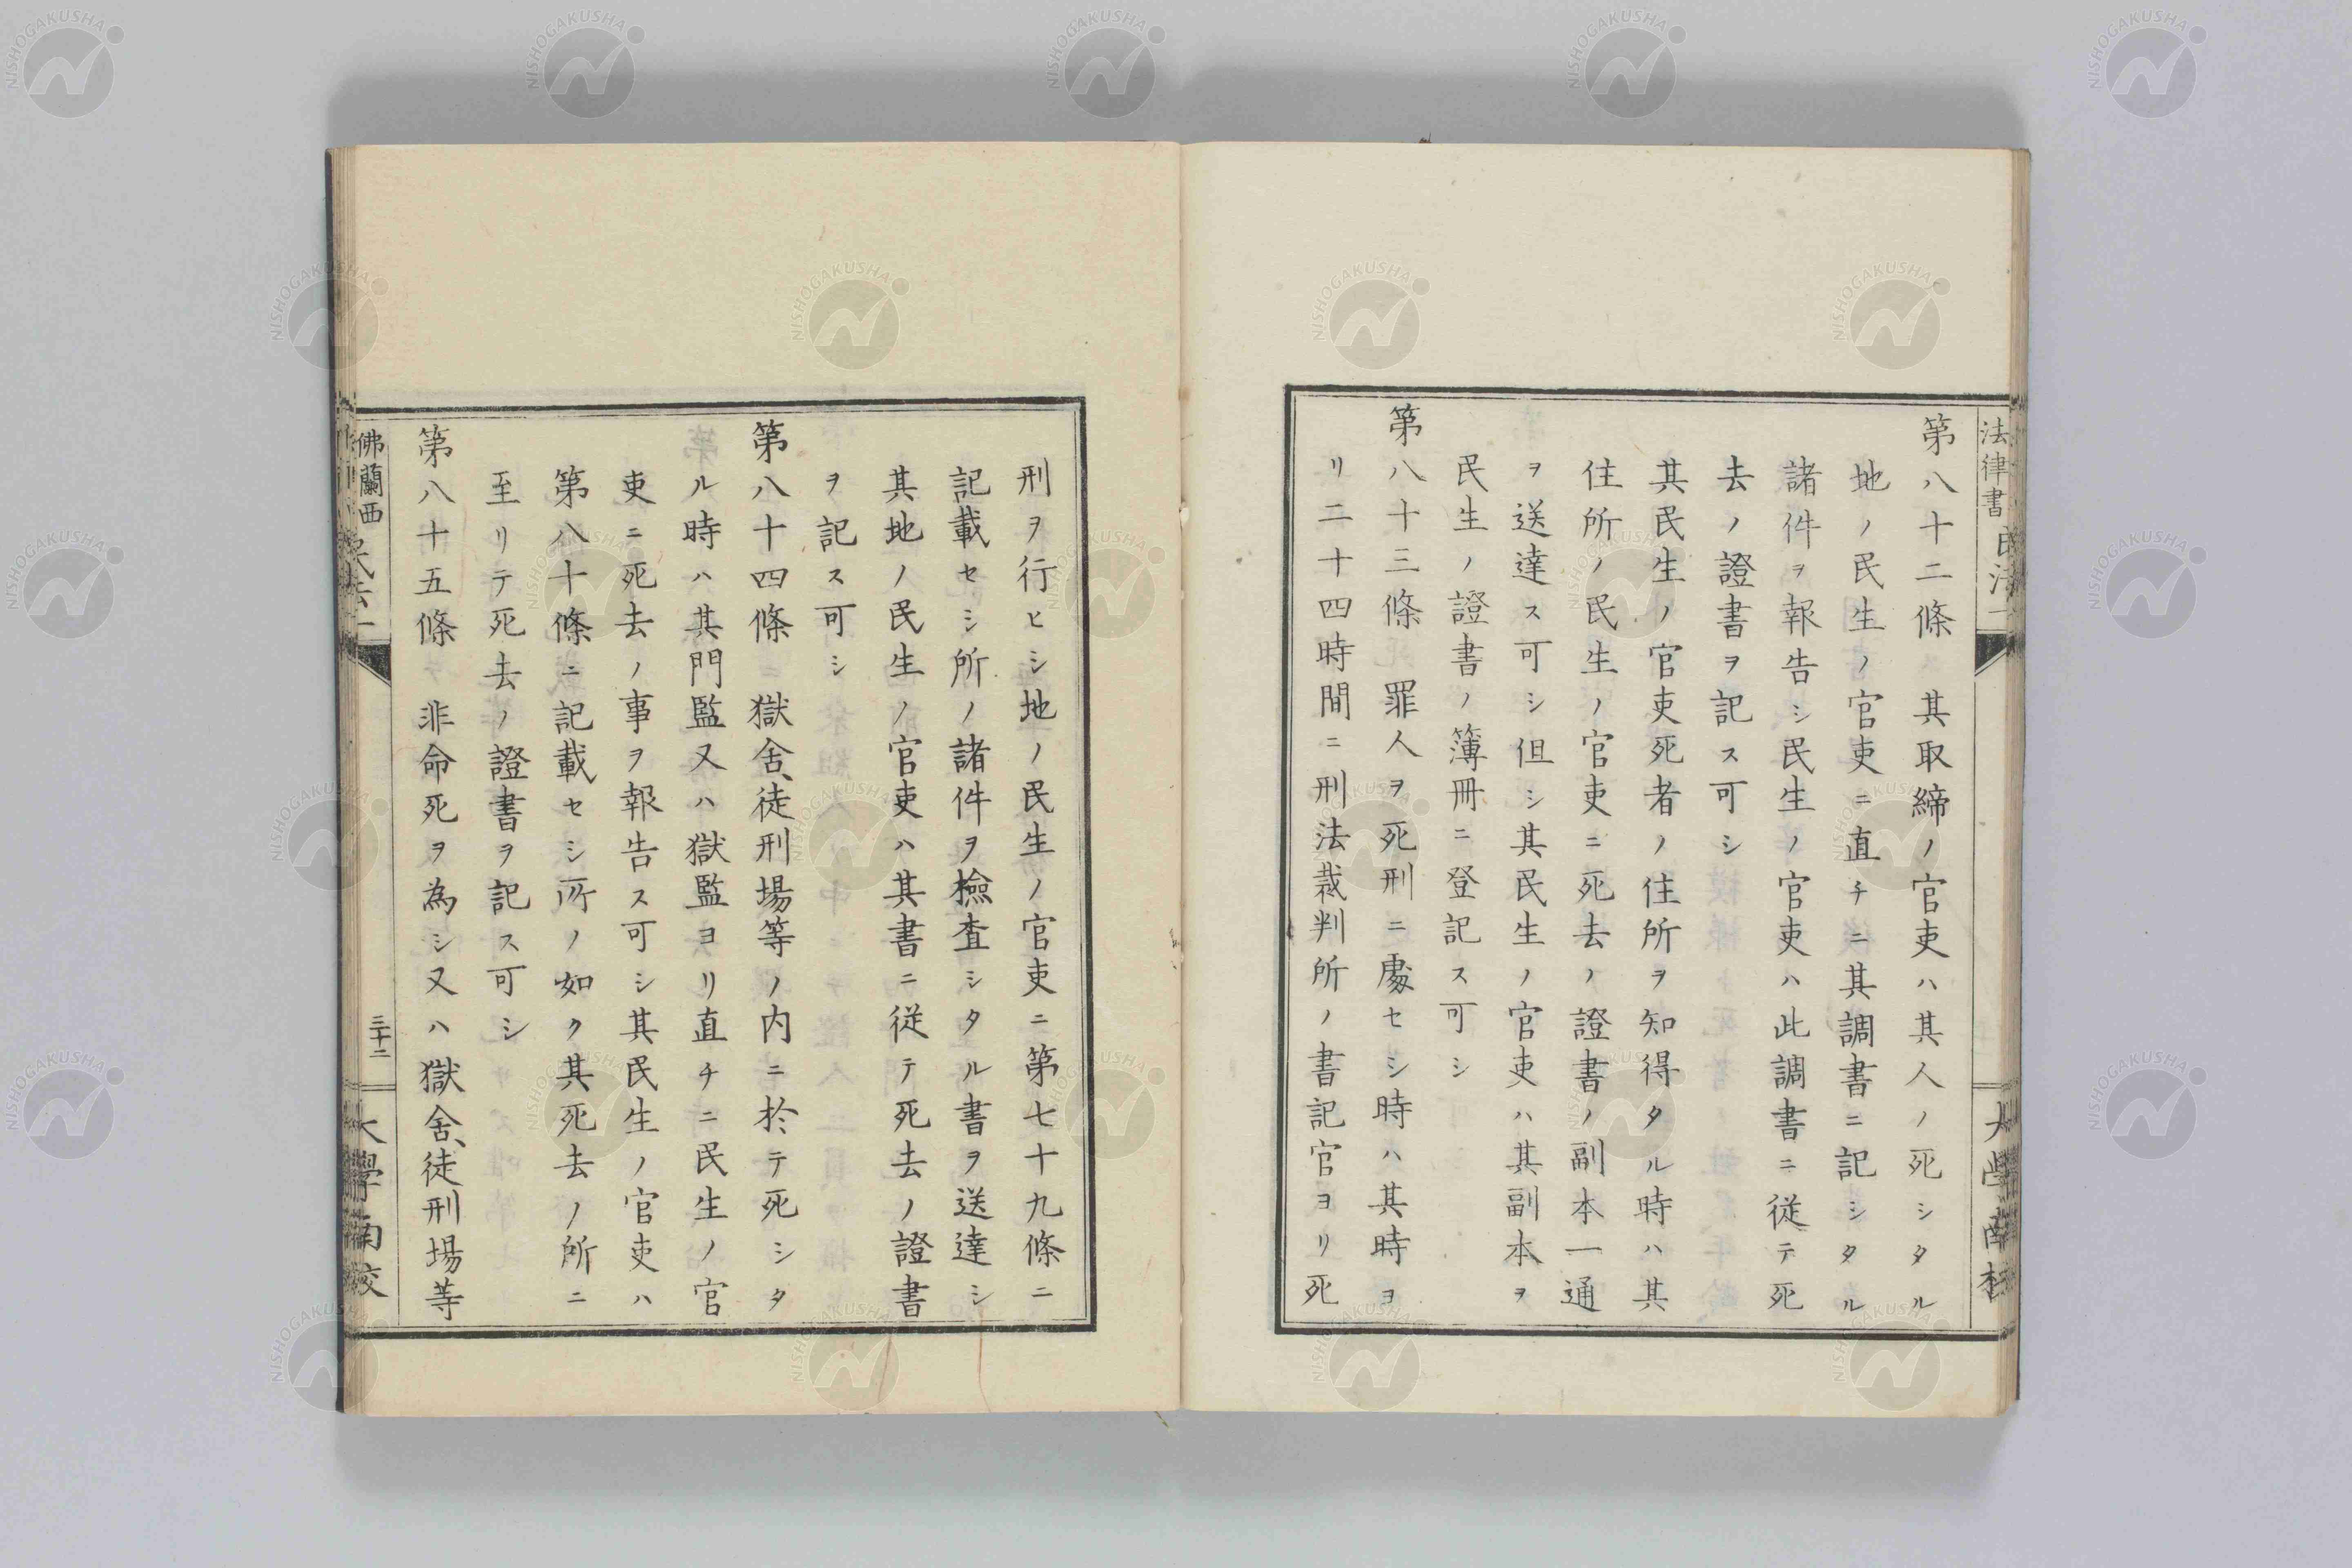 法律書 民法一
第八十二條 其取締ノ官吏ハ其人ノ死シタル
地ノ民生ノ官吏ニ直チニ其調書ニ記シタル
諸件ヲ報告シ民生ノ官吏ハ此調書ニ従テ死
去ノ證書ヲ記ス可シ
其民生ノ官吏死者ノ住所ヲ知得タル時ハ其
住所ノ民生ノ官吏ニ死去ノ證書ノ副本一通
ヲ送達ス可シ但シ其民生ノ官吏ハ其副本ヲ
民生ノ證書ノ簿冊ニ登記ス可シ
第八十三條 罪人ヲ死刑ニ處セシ時ハ其時ヨ
リ二十四時間ニ刑法裁判所ノ書記官ヨリ死
大學南校
刑ヲ行ヒシ地ノ民生ノ官吏ニ第七十九條ニ
記載セシ所ノ諸件ヲ檢査シタル書ヲ送達シ
其地ノ民生ノ官吏ハ其書ニ従テ死去ノ證書
ヲ記ス可シ
第八十四條 獄舎、徒刑場等ノ内ニ於テ死シタ
ル時ハ其門監又ハ獄監ヨリ直チニ民生ノ官
吏ニ死去ノ事ヲ報告ス可シ其民生ノ官吏ハ
第八十條ニ記載セシ所ノ如ク其死去ノ所ニ
至リテ死去ノ證書ヲ記ス可シ
第八十五條 非命死ヲ為シ又ハ獄舎、徒刑場等
佛蘭西 民法一
三十二
大學南校
NISHOGAKUSHA